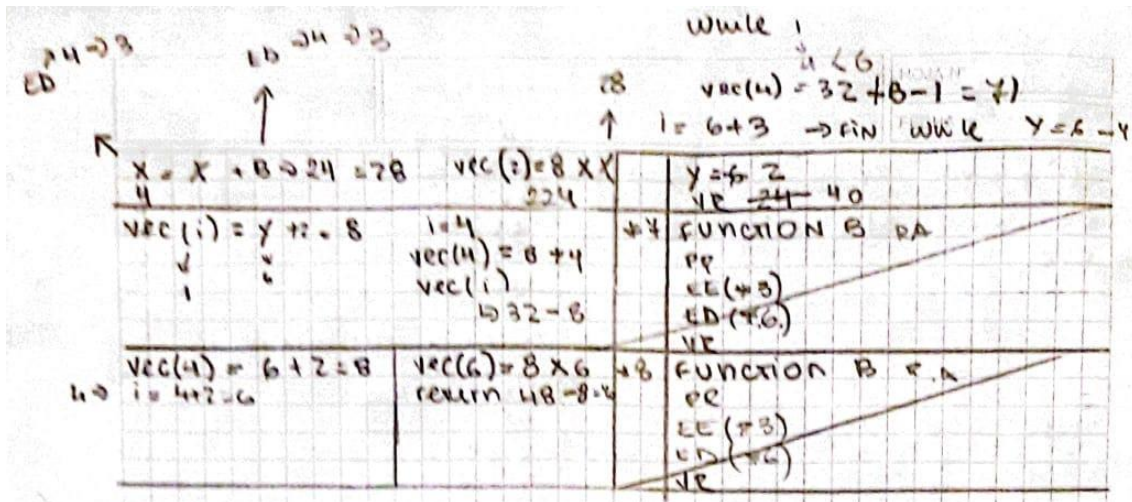 while i
ED → 4 → 3
ED → 4 → 3
4 < 6
28
vec(4) = 32 + 8 - 1 = 7)
i = 6+3 → FIN while Y = 6 - 4
X = X + B → 24 = 28
4
vec(i) = 8 x X
224
Y = 6 2
VR 24 40
vec(i) = y + 2 = 8
1
6
i = 4
vec(4) = 8 + 4
vec(i)
↳ 32 - 8
*7 FUNCTION B RA
PR
EE (*3)
ED (*6)
VR
vec(4) = 6 + 2 = 8
4 → i = 4+2 = 6
vec(6) = 8 x 6
return 48 - 8
*8 FUNCTION B R.A
PR
EE (*3)
ED (*6)
VR